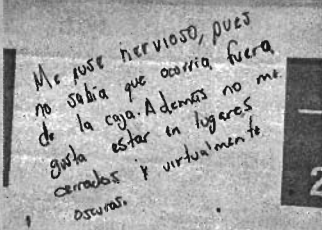 Me puse nervioso, pues
no sabia que ocorria fuera
de la caja. Además no me
gusta estar en lugares
cerrados y virtualmente
oscuros.
2